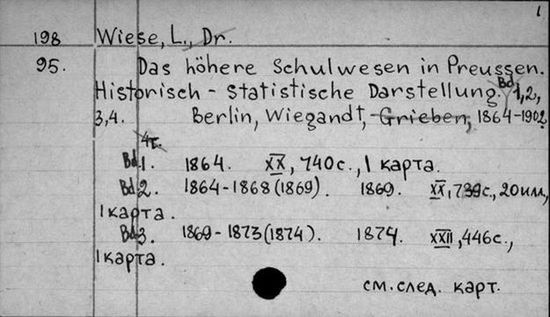 1
198 Wiese, L., Dr.
95. Das höhere Schulwesen in Preussen.
Historisch - Statistische Darstellung. Bd 1,2,
3,4. Berlin, Wiegandt, Grieben, 1864-1902
4т.
Bd.1. 1864. XX, 740с., 1 карта.
Bd.2. 1864-1868 (1869). 1869. XX, 739с., 20илл,
1 карта.
Bd.3. 1869-1873 (1874). 1874. XXII, 446с.,
1 карта.
см. след. карт.